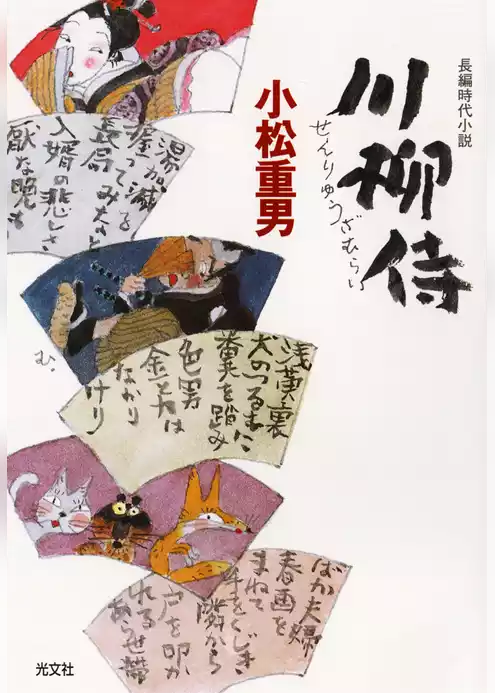 長編時代小説
川柳侍
せんりゅうざむらい
小松重男
湯加減を
握ってみなと
長局
入婿の悲しさ
厭な晩も
む.
浅草裏
犬のつるむに
糞を踏み
色男
金と力は
なかり
けり
ばか夫婦
春画を
まねて
手をくじき
隣から
戸を叩か
れる
あらせ帯
光文社